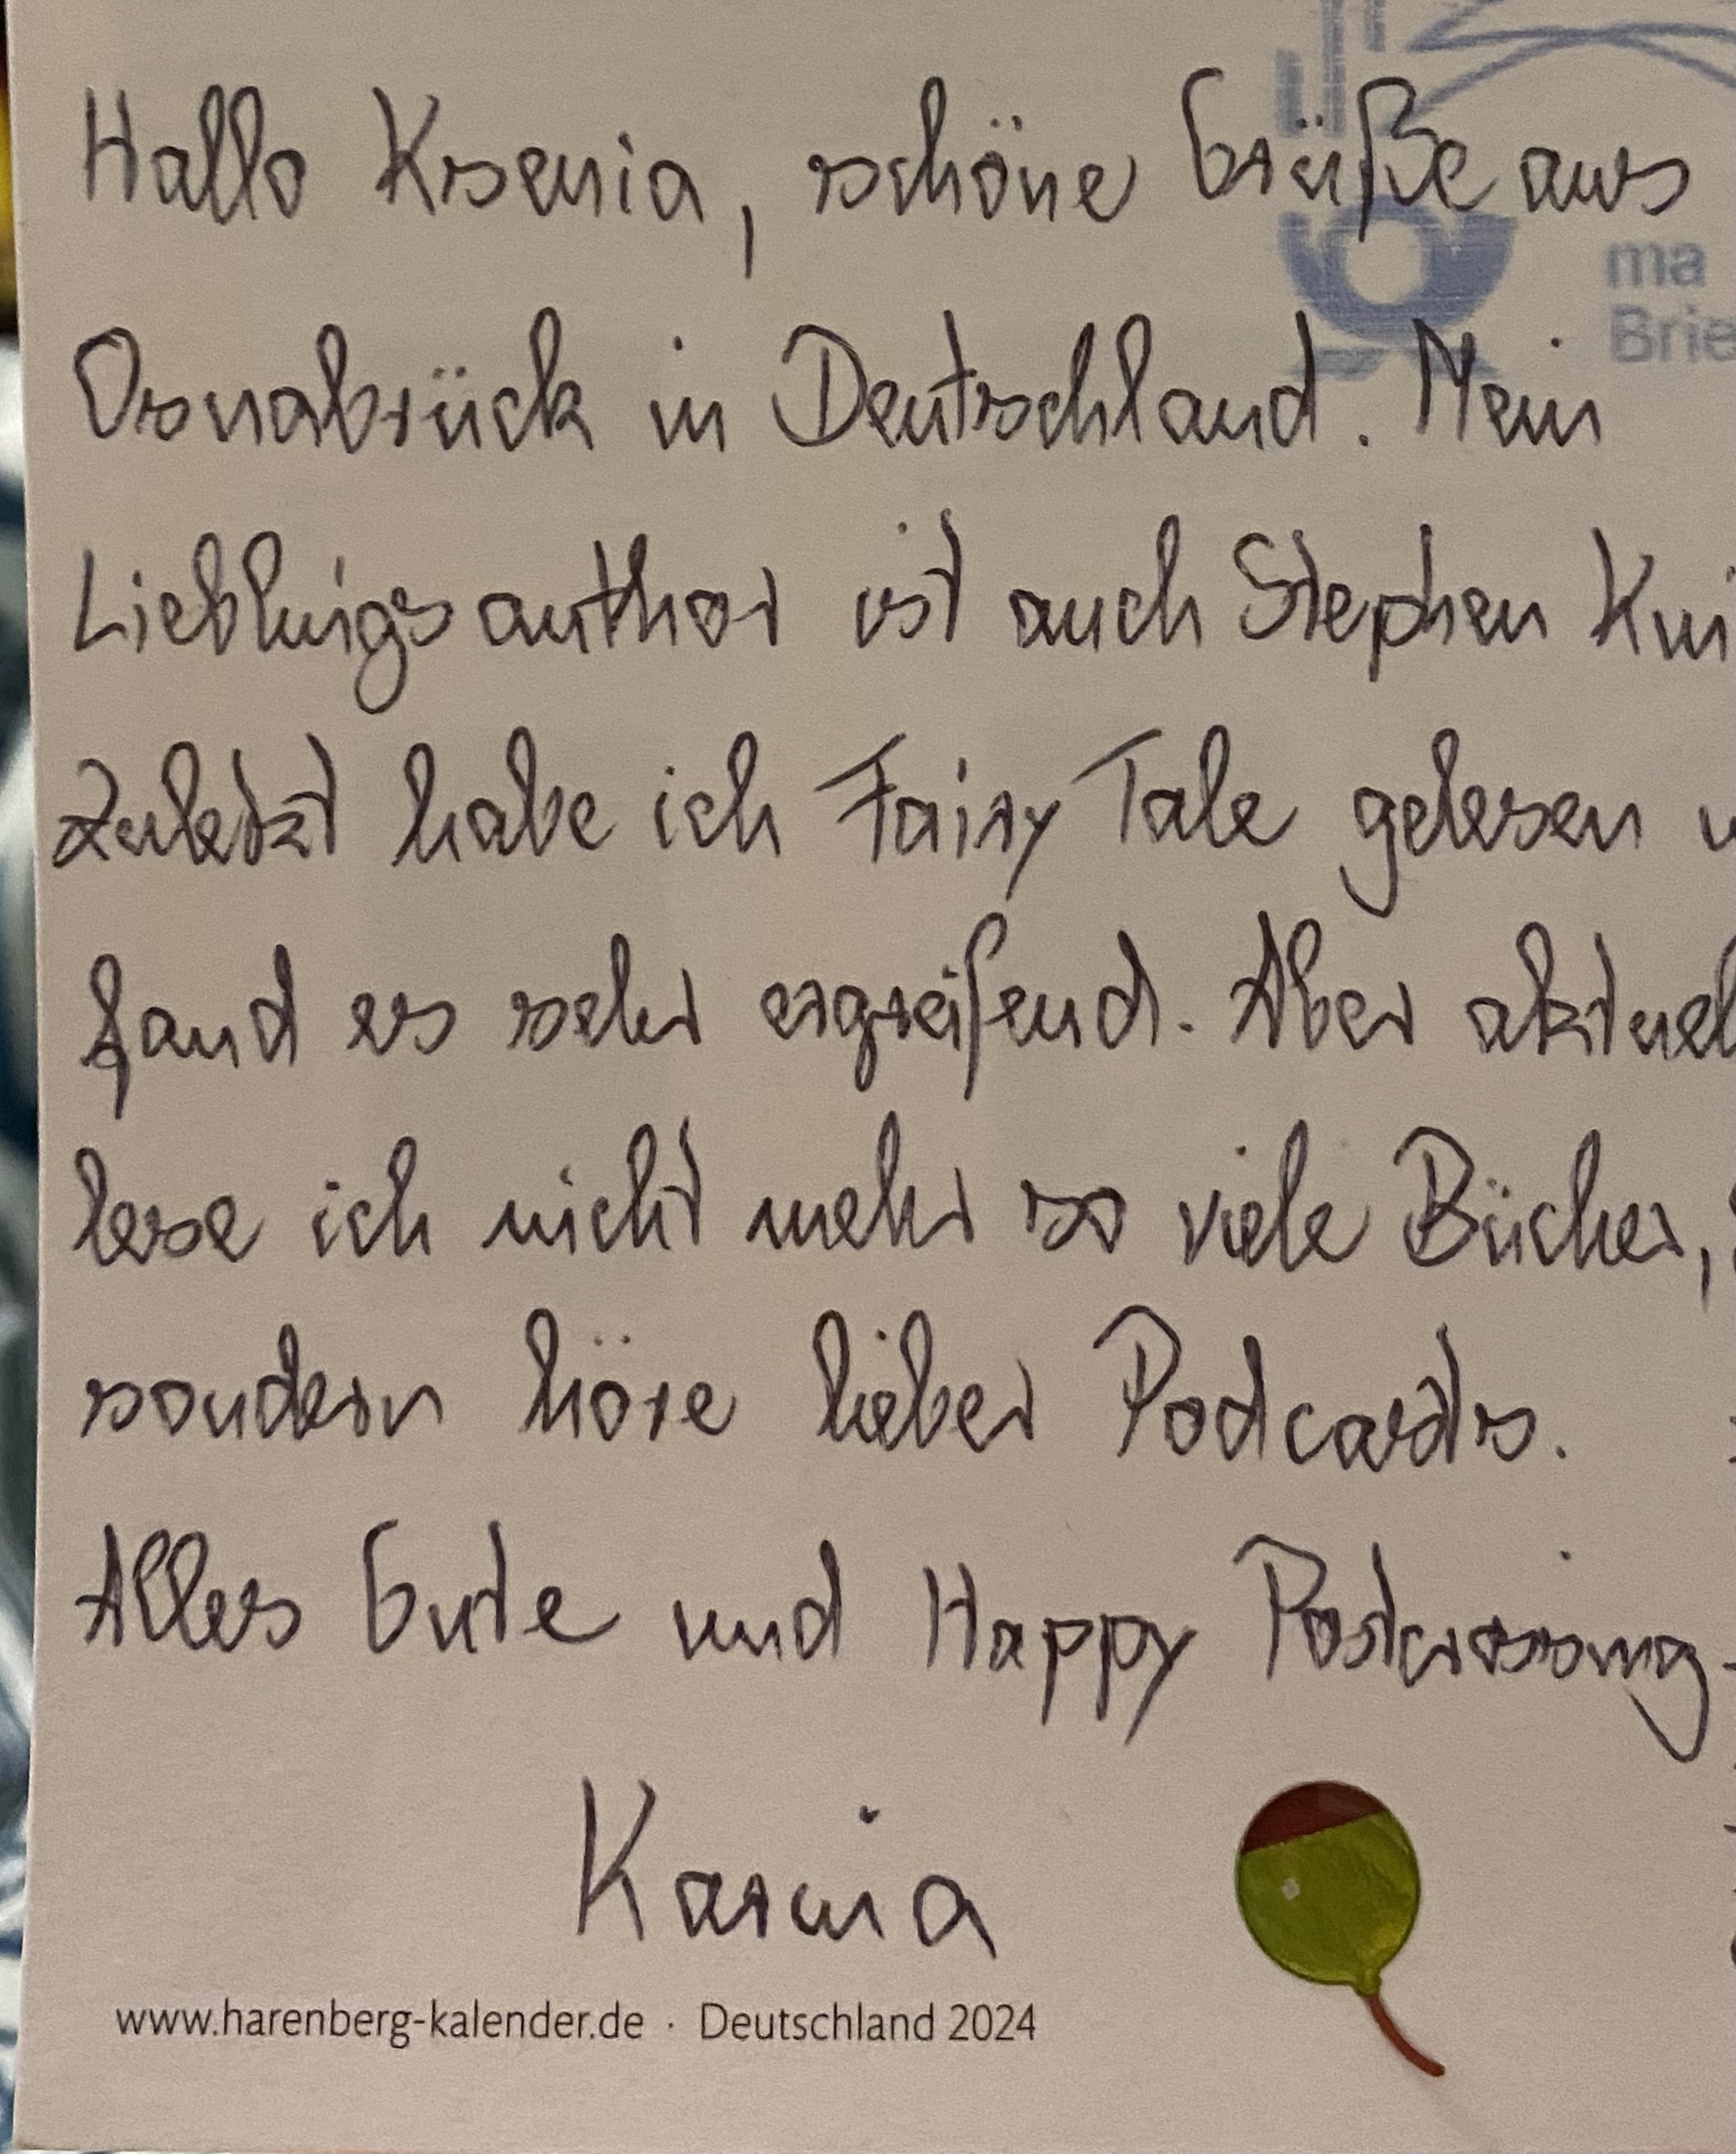 Hallo Ksenia, schöne Grüße aus
ma
Brie
Osnabrück in Deutschland. Mein
Lieblingsauthor ist auch Stephen Kin
Zuletzt habe ich Fairy Tale gelesen u
fand es sehr ergreifend. Aber aktuel
lese ich nicht mehr so viele Bücher,
sondern höre lieber Podcasts.
Alles Gute und Happy Postcrossing
www.harenberg-kalender.de · Deutschland 2024